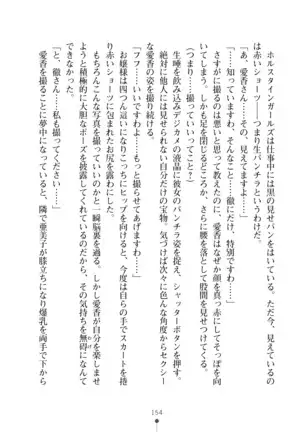 ホルスタインガールズは仕事中には黒の見せパンをはいている。ただ今、見えているの
は赤いショーツ――つまり生パンチラというわけだ。
「あ、愛香さん……見えてますよ……」
「……知っていますわ、そんなこと……徹にだけ、特別ですわ……」
さすがに撮るのは悪いと思って教えたのに、愛香はなぜか顔を真っ赤にしてそっぽを向
く。しかも足を閉じるどころか、さらに腰を落として股間を見せつけてくる。
（つまり……撮っていいってことですか……）
生唾を飲み込みデジカメの液晶に彼女のパンチラ姿を捉え、シャッターボタンを押す。
他の人には見せられない自分だけの宝物。気づけば次々に色んな角度からセクシー
な愛香の姿を撮り続ける。
「フフ……いいですわよ……もっと撮らせてあげますわ……」
お嬢様は四つん這いになりこっちにヒップを向けると、今度は自らの手でスカートを捲
り赤いショーツに包まれたお尻を露わにしてくる。
もちろんこんな写真を撮っていいのかと一瞬脳裏を過る。しかし愛香が自分を楽しませ
ようと積極的に大胆なポーズを披露してくれているのだ。その気持ちを無碍になんて
できなかった。
「と、徹さん……私も撮ってください……」
愛香を撮ることに夢中になっていると、隣で亜美子が膝立ちになり爆乳を両手で下から
154